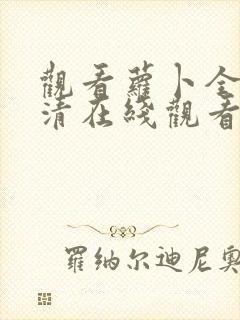 觀看蘿卜全
清在綫觀看
羅纳尔迪尼奥